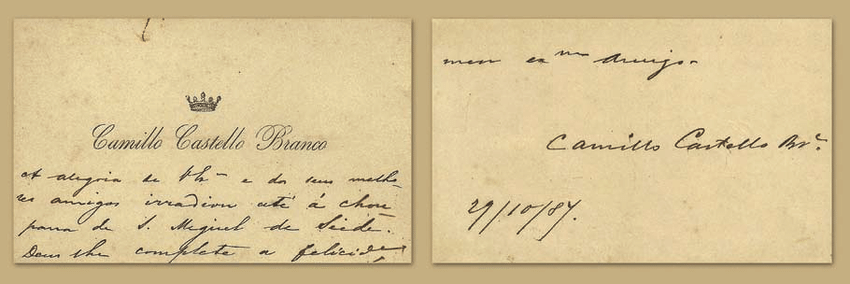 Camillo Castello Branco
A alegria de e dos seus melho-
res amigos irradiou até á chou
pana de S. Miguel de Seide.
Deus lhe complete a felicide,
meu exmo amigo.
Camillo Castello Br.º
29/10/87.